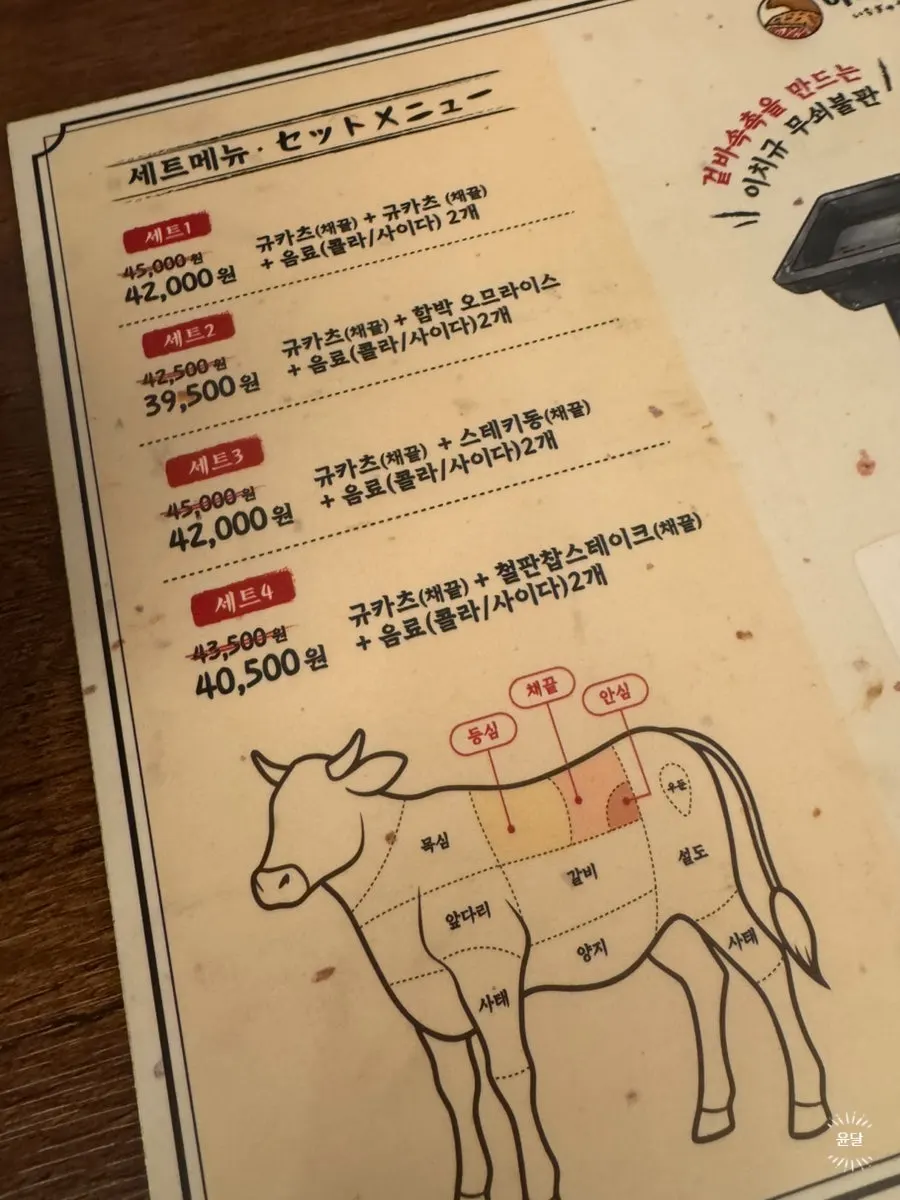 세트메뉴·セットメニュー
세트1
45,000원
42,000원
규카츠(채끝) + 규카츠 (채끝)
+ 음료(콜라/사이다) 2개
세트2
42,500원
39,500원
규카츠(채끝) + 함박 오므라이스
+ 음료(콜라/사이다)2개
세트3
45,000원
42,000원
규카츠(채끝) + 스테키동(채끝)
+ 음료(콜라/사이다)2개
세트4
43,500원
40,500원
규카츠(채끝) + 철판찹스테이크(채끝)
+ 음료(콜라/사이다)2개
등심
채끝
안심
목심
우둔
갈비
설도
앞다리
양지
사태
사태
겉바속촉을 만드는
이치규 무쇠불판
윤달